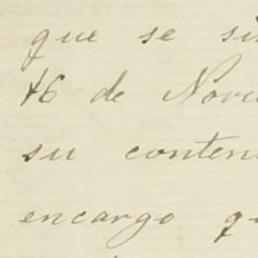 que se si
16 de Nov
su conten
encargo q